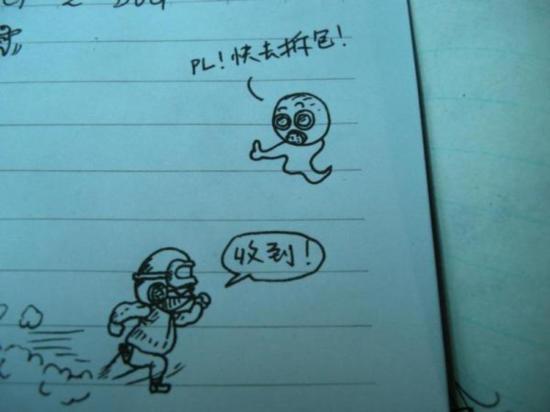 PL!快去拆包!
收到!